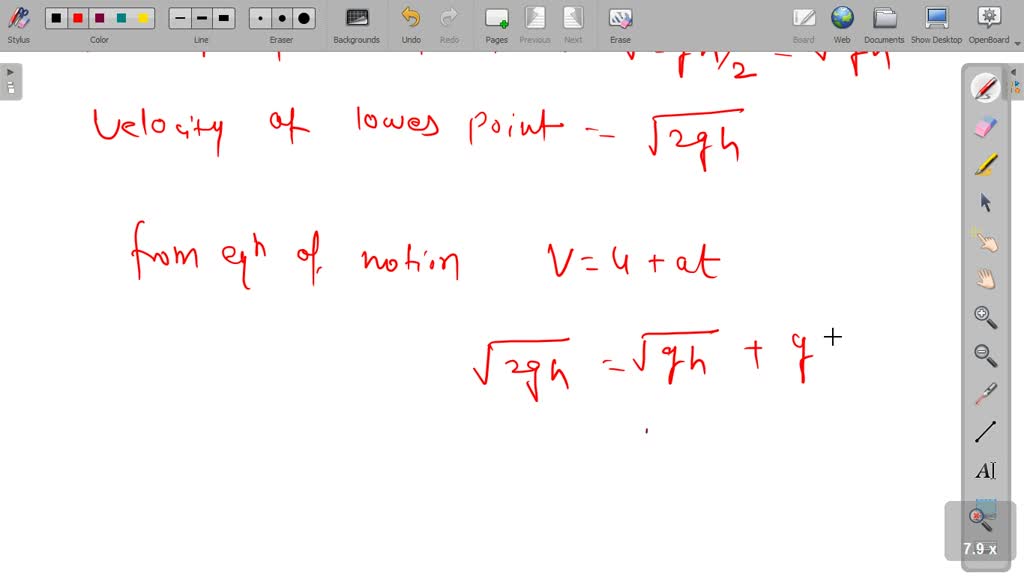 Stylus Color Line Eraser Backgrounds Undo Redo Pages Previous Next Erase Board Web Documents Show Desktop OpenBoard
/2 = √gh
Velocity of lowes point = √2gh
from eqn of notion V = u + at
√2gh = √gh + g
AI
7.9 x